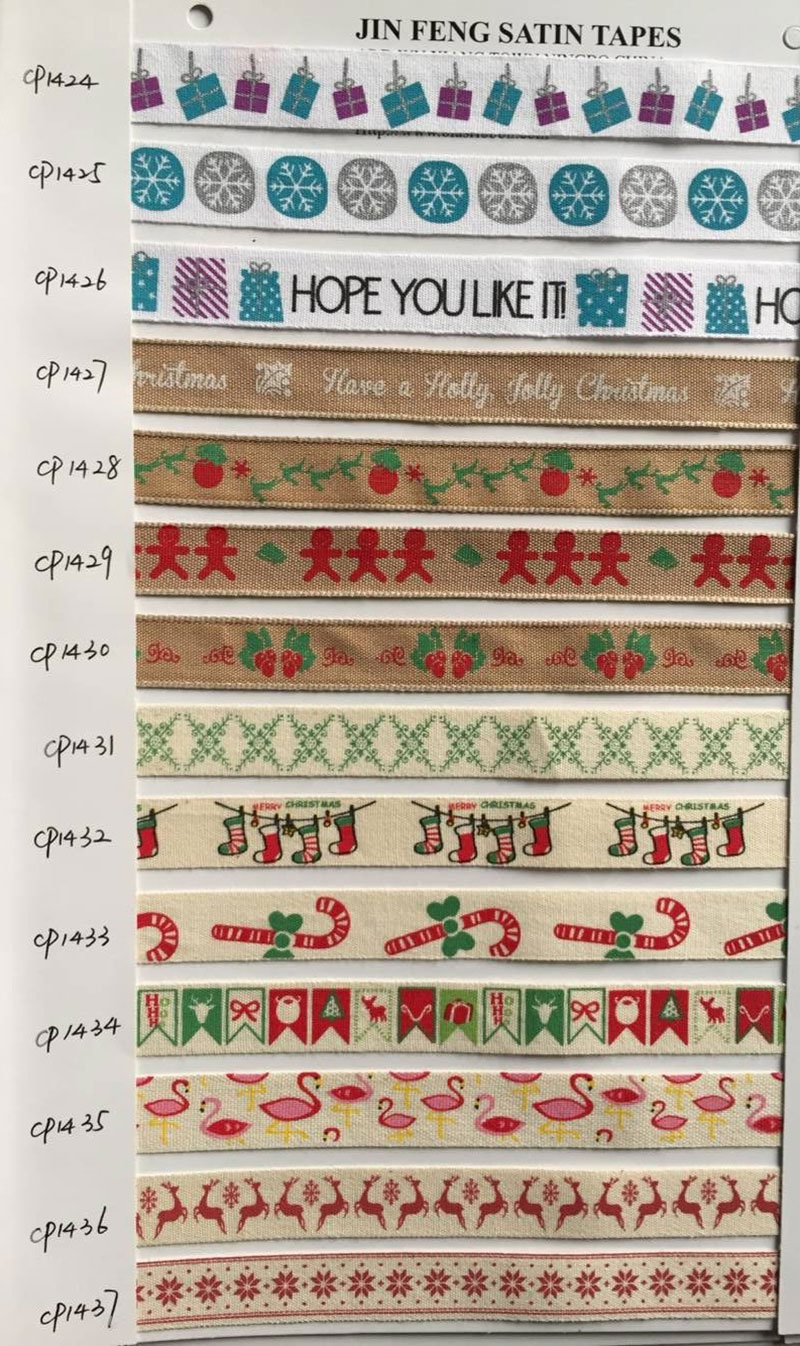 JIN FENG SATIN TAPES
CP1424
CP1425
CP1426
HOPE YOU LIKE IT! HO
CP1427
hristmas Have a Holly, Jolly Christmas H
CP1428
CP1429
CP1430
CP1431
CP1432
MERRY CHRISTMAS MERRY CHRISTMAS MERRY CHRISTMAS
CP1433
CP1434
HHH HOHO HHH HOHO
CP1435
CP1436
CP1437